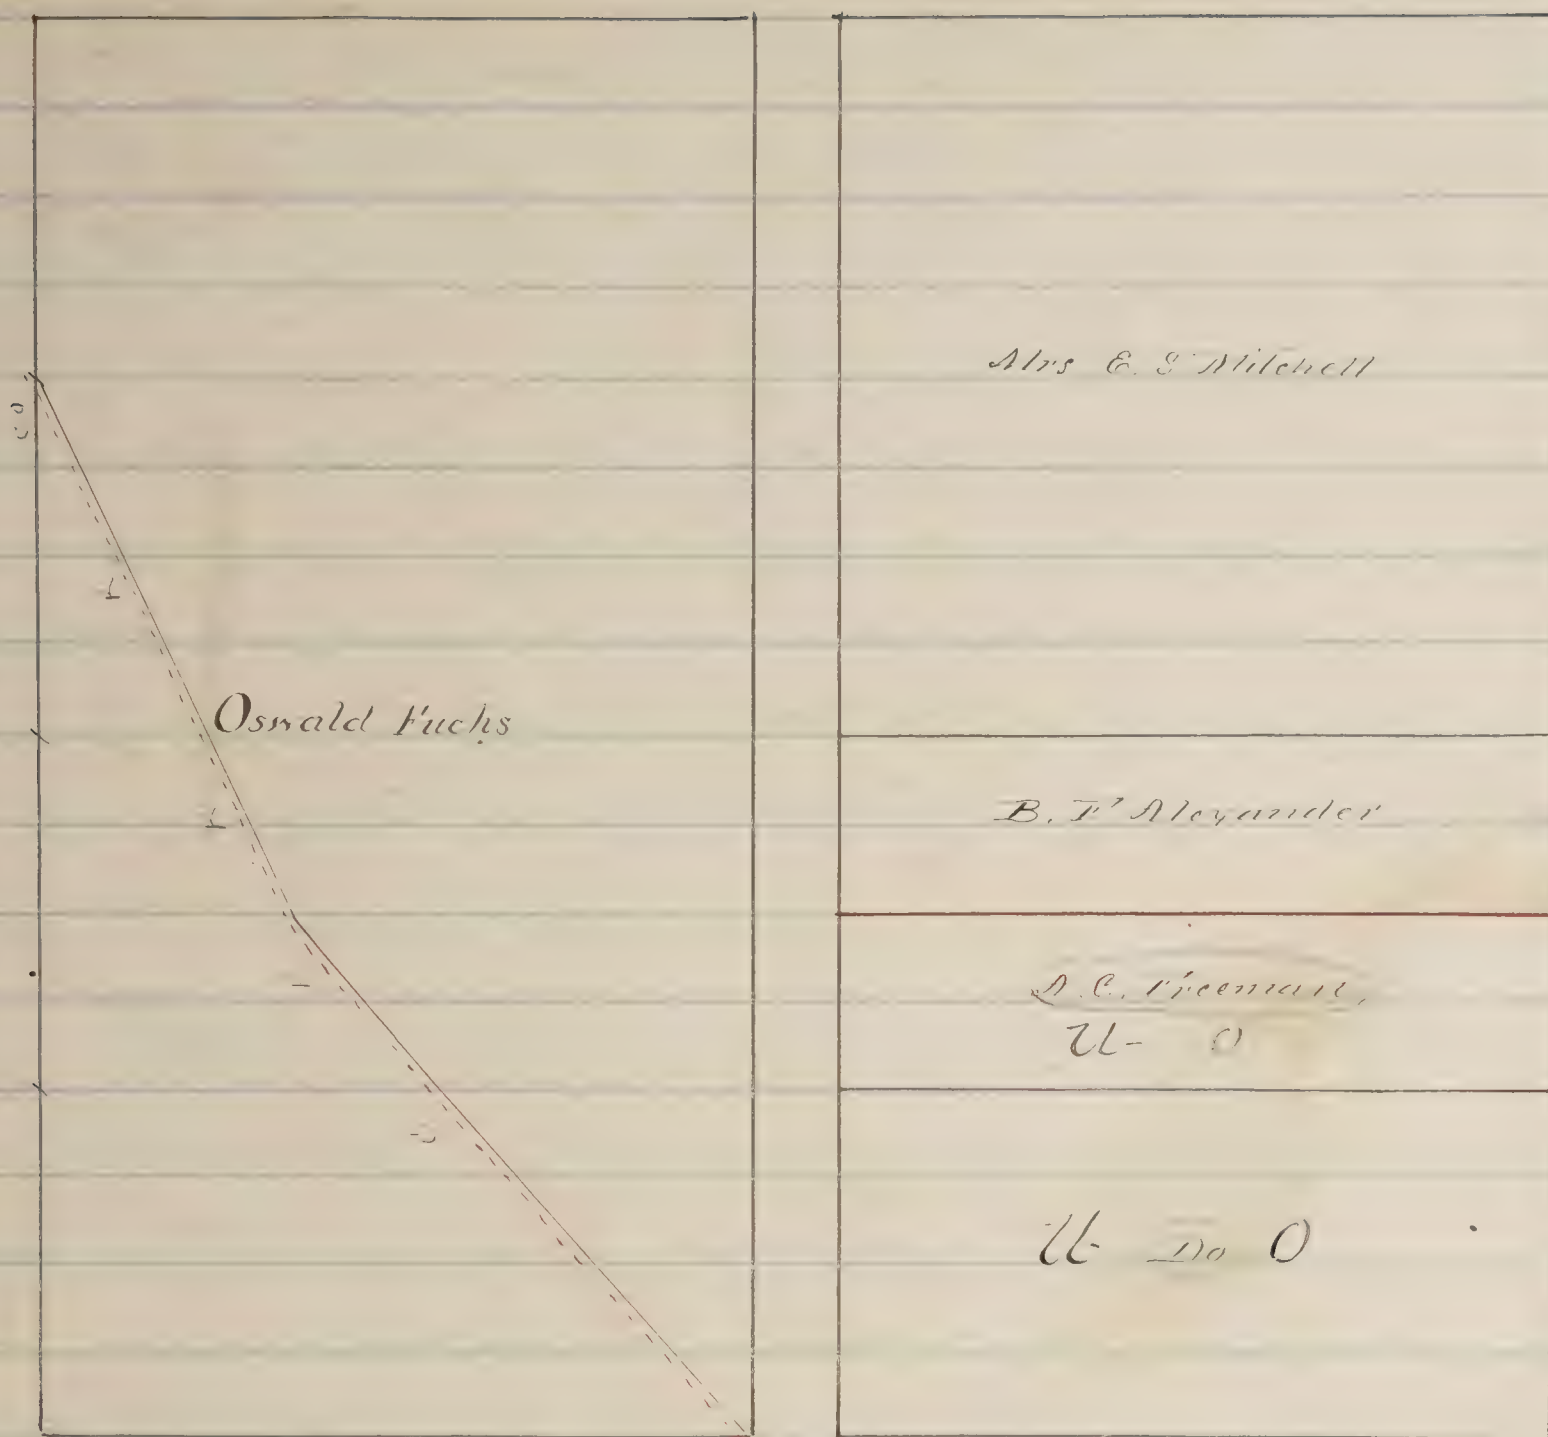 Oswald Fuchs
Mrs E. S. Mitchell
B. F. Alexander
A. C. Freeman,
U- O
U- Do O